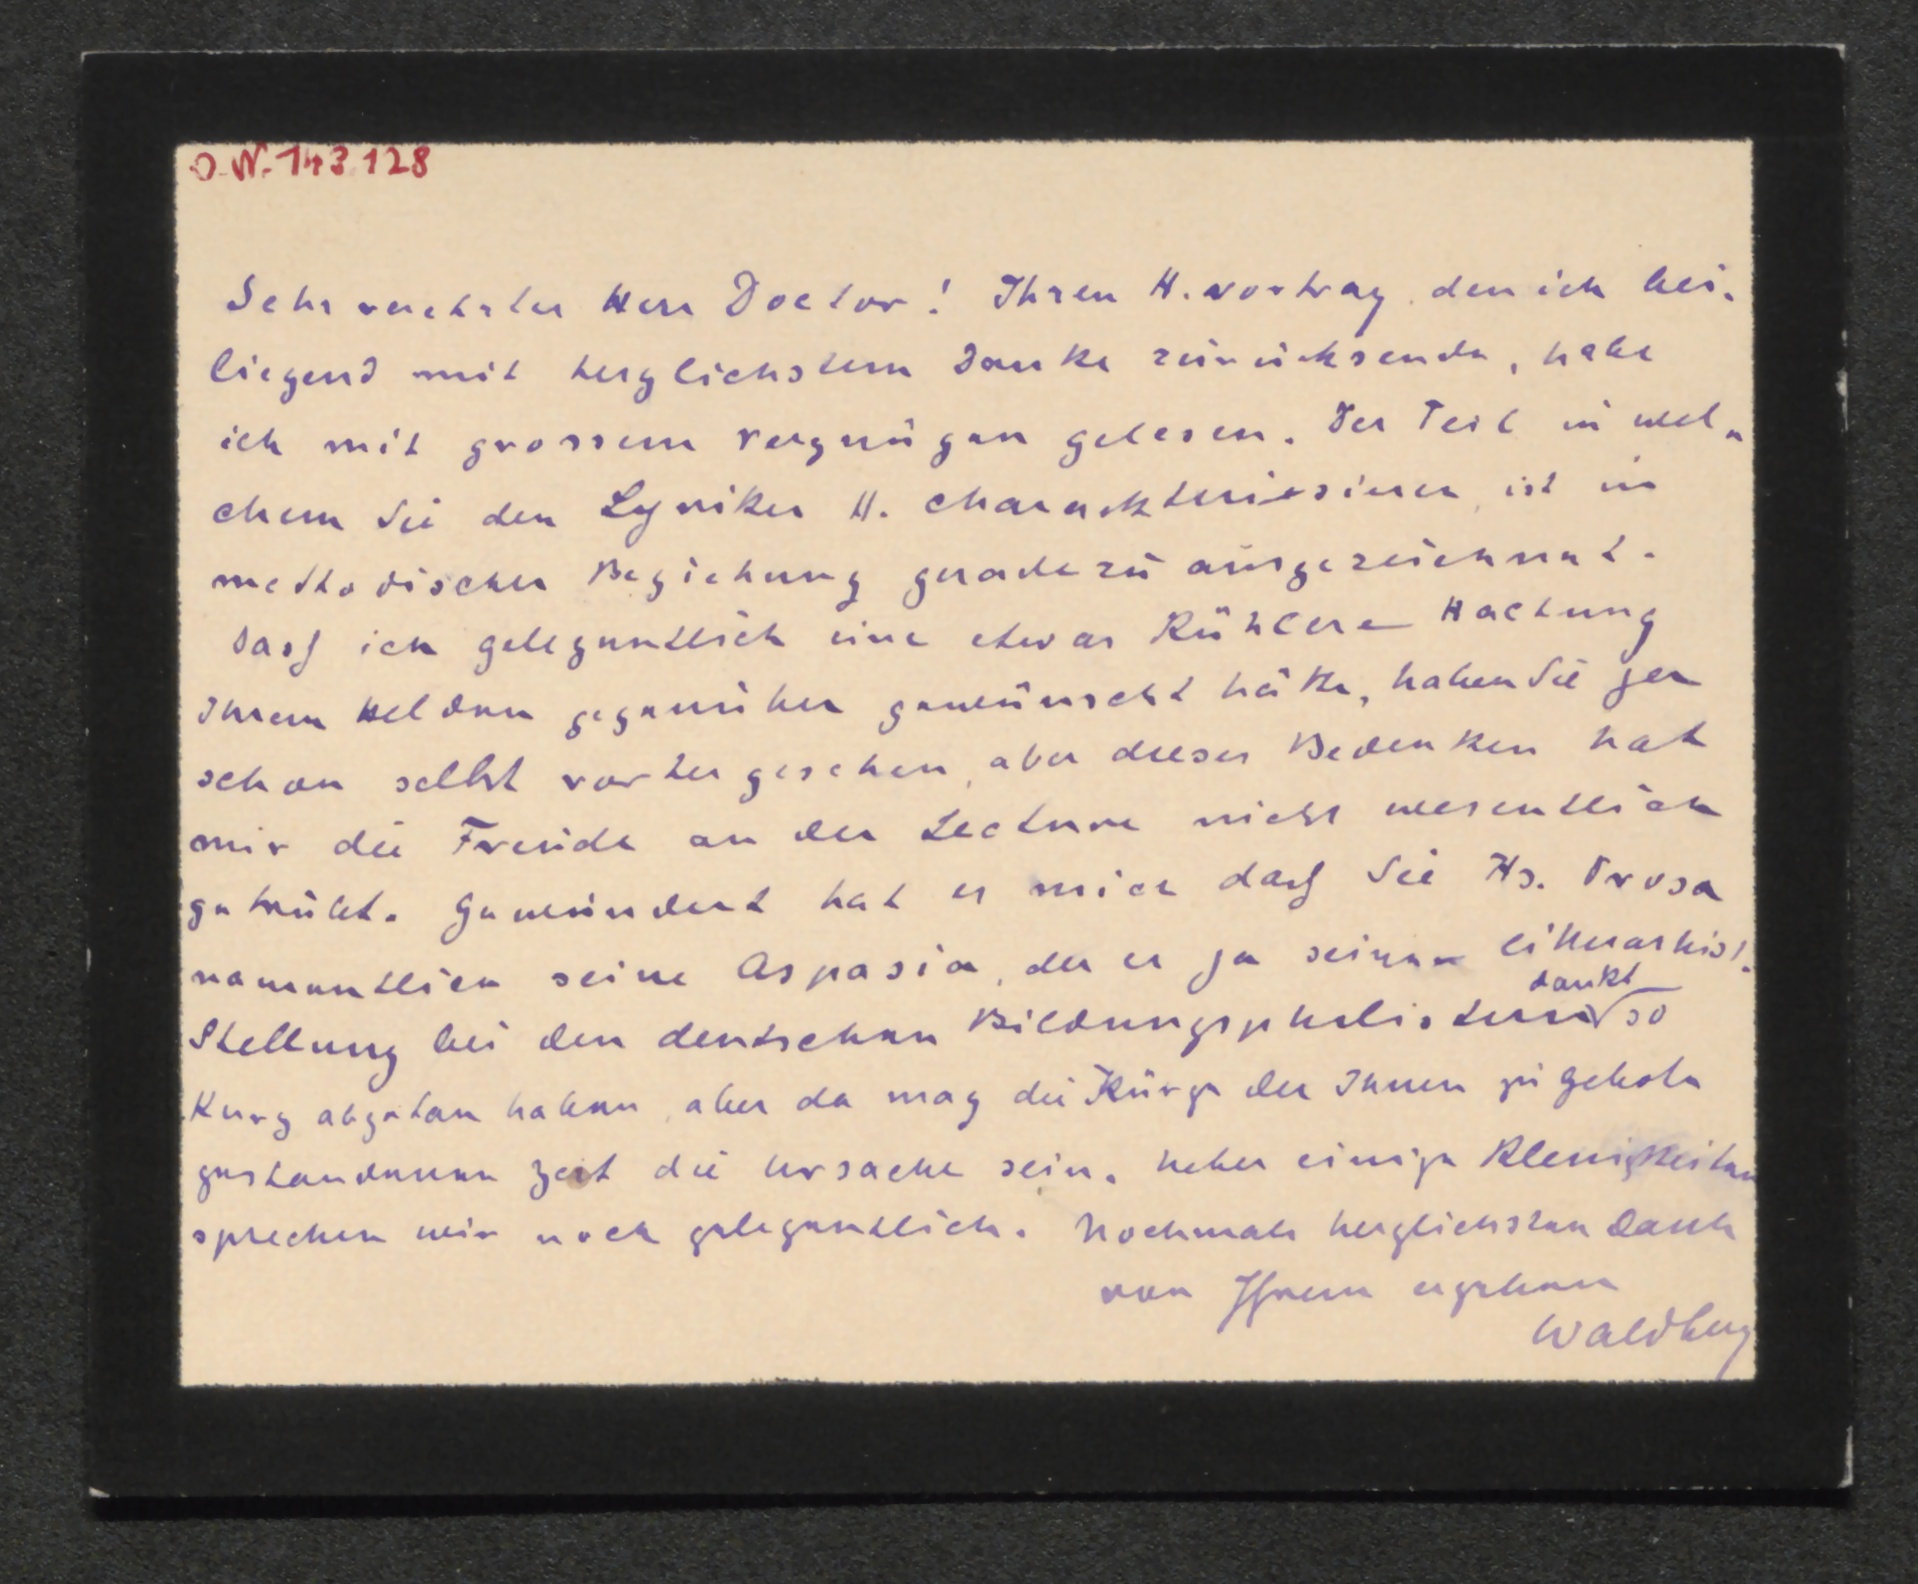 J.N. 143.128
Sehr verehrter Herr Doctor! Ihren H. vortrag, den ich bei-
liegend mit herzlichstem Danke zurücksende, habe
ich mit grossem Vergnügen gelesen. Der Teil in wel-
chem Sie den Lyriker H. charakterisieren, ist in
methodischer Beziehung geradezu ausgezeichnet.
Dass ich gelegentlich eine etwas kühlere Haltung
Ihrem Helden gegenüber gewünscht hätte, haben Sie ja
schon selbst vorhergesehen, aber dieses Bedenken hat
mir die Freude an der Lecture nicht wesentlich
getrübt. Gewundert hat es mich dass Sie Hs. Prosa
namentlich seine Aspasia, der er ja seine litterarhist.
Stellung bei den deutschen Bildungsphilistern dankt so
kurz abgetan haben, aber da mag die Kürze der Ihnen zu gebote
gestandenen Zeit die Ursache sein. Ueber einige Kleinigkeiten
sprechen wir noch gelegentlich. Nochmals herzlichsten Dank
von Ihrem ergebenen
Waldberg